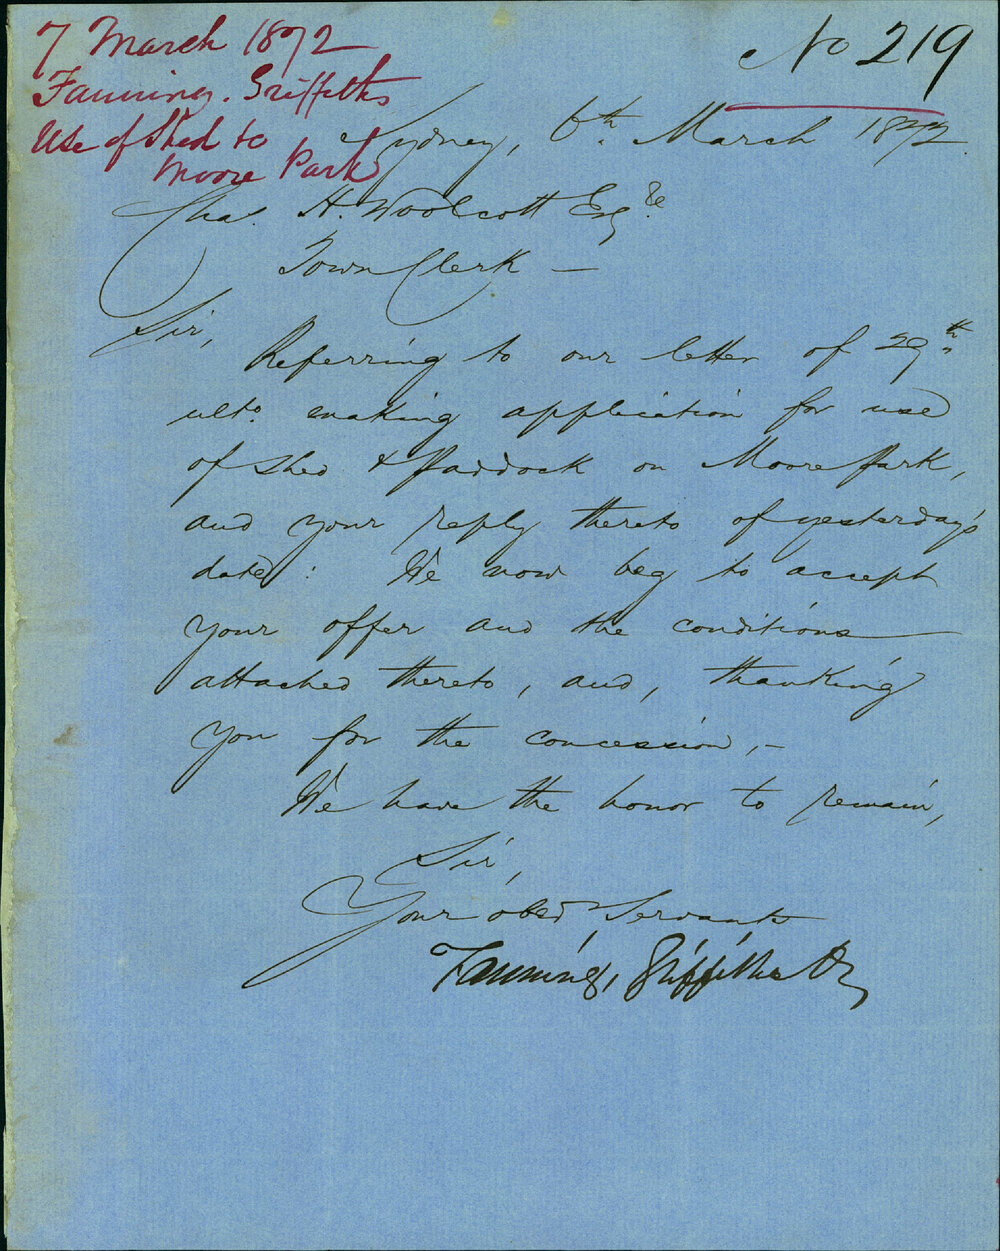 7 March 1872
Fanning. Griffiths
Use of Shed to
Moore Park
No 219
Sydney, 6th. March 1872.
Chas. H. Woolcott Esqre.
Town Clerk —
Sir,
Referring to our letter of 29th.
ulto. making application for use
of Shed & Paddock on Moore Park,
and your reply thereto of yesterday's
date: We now beg to accept
your offer and the conditions
attached thereto, and, thanking
you for the concession, —
We have the honor to remain,
Sir,
Your obed Servants
Fanning, Griffiths &